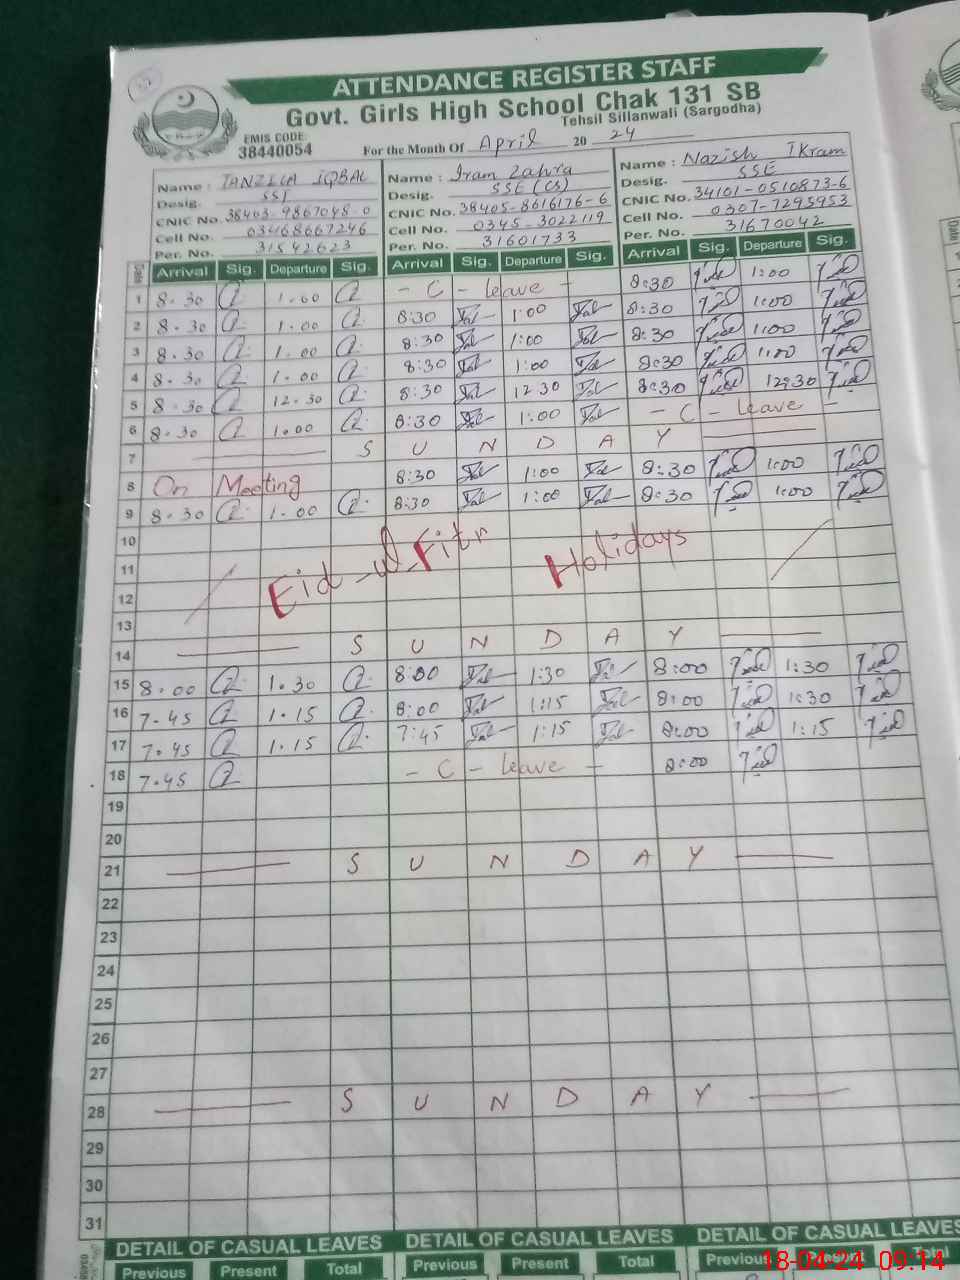 ATTENDANCE REGISTER STAFF
Govt. Girls High School Chak 131 SB
Tehsil Sillanwali (Sargodha)
EMIS CODE:
38440054
For the Month Of April 20 24
Name : TANZILA IQBAL
Desig. SST
CNIC No. 38403-9867048-0
Cell No. 03468667246
Per. No. 31542623
Name : Iram Zahra
Desig. SSE (CS)
CNIC No. 38405-8616176-6
Cell No. 0345-3022119
Per. No. 31601733
Name : Nazish IKram
Desig. SSE
CNIC No. 34101-0510873-6
Cell No. 0307-7295953
Per. No. 31670042
Date Arrival Sig. Departure Sig. Arrival Sig. Departure Sig. Arrival Sig. Departure Sig.
1 8.30 1.00 - C - leave - 8:30 1:00
2 8.30 1.00 8:30 1:00 8:30 1:00
3 8.30 1.00 8:30 1:00 8:30 1:00
4 8.30 1.00 8:30 1:00 8:30 1:00
5 8.30 12.30 8:30 12 30 8:30 12:30
6 8.30 1.00 8:30 1:00 - C - leave -
7 S U N D A Y
8 On Meeting 8:30 1:00 8:30 1:00
9 8.30 1.00 8:30 1:00 8:30 1:00
10
11 Eid-ul-Fitr Holidays
12
13
14 S U N D A Y
15 8.00 1.30 8:00 1:30 8:00 1:30
16 7.45 1.15 8:00 1:15 8:00 1:30
17 7.45 1.15 7:45 1:15 8:00 1:15
18 7.45 - C - leave - 8:00
19
20
21 S U N D A Y
22
23
24
25
26
27
28 S U N D A Y
29
30
31
DETAIL OF CASUAL LEAVES DETAIL OF CASUAL LEAVES DETAIL OF CASUAL LEAVES
Previous Present Total Previous Present Total Previous
18-04-24 09:14